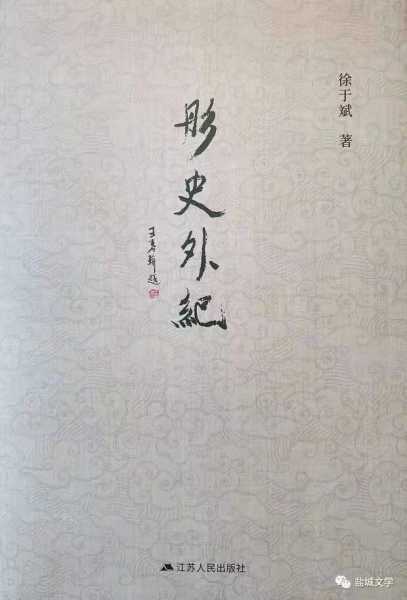 徐于斌 著
彤史外紀
江苏人民出版社
盐城文学